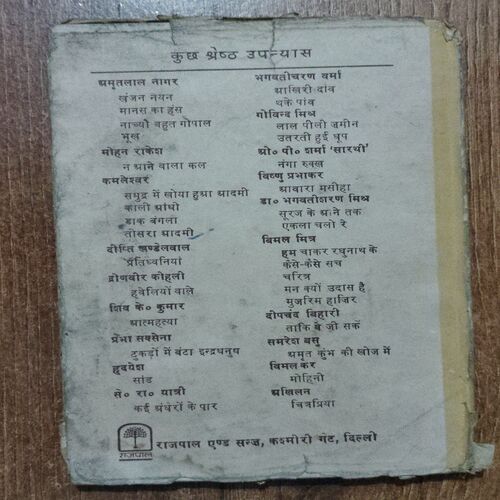 कुछ श्रेष्ठ उपन्यास
अमृतलाल नागर
खंजन नयन
मानस का हंस
नाच्यौ बहुत गोपाल
भूख
मोहन राकेश
न आने वाला कल
कमलेश्वर
समुद्र में खोया हुआ आदमी
काली आंधी
डाक बंगला
तीसरा आदमी
दीप्ति खण्डेलवाल
प्रतिध्वनियां
द्रोणवीर कोहली
हवेलियों वाले
शिव के० कुमार
आत्महत्या
प्रेमा सक्सेना
टुकड़ों में बंटा इन्द्रधनुष
हृदयेश
सांड
से० रा० यात्री
कई अंधेरों के पार
भगवतीचरण वर्मा
आखिरी दांव
थके पांव
गोविन्द मिश्र
लाल पीली ज़मीन
उतरती हुई धूप
ओ० पी० शर्मा 'सारथी'
नंगा रुक्ख
विष्णु प्रभाकर
आवारा मसीहा
डा० भगवतीशरण मिश्र
सूरज के आने तक
एकला चलो रे
बिमल मित्र
हम चाकर रघुनाथ के
कैसे-कैसे सच
चरित्र
मन क्यों उदास है
मुजरिम हाज़िर
दीपचंद बिहारी
ताकि वे जी सकें
समरेश बसु
अमृत कुंभ की खोज में
बिमल कर
मोहिनी
अखिलन
चित्रप्रिया
राजपाल
राजपाल एण्ड सन्ज़, कश्मीरी गेट, दिल्ली